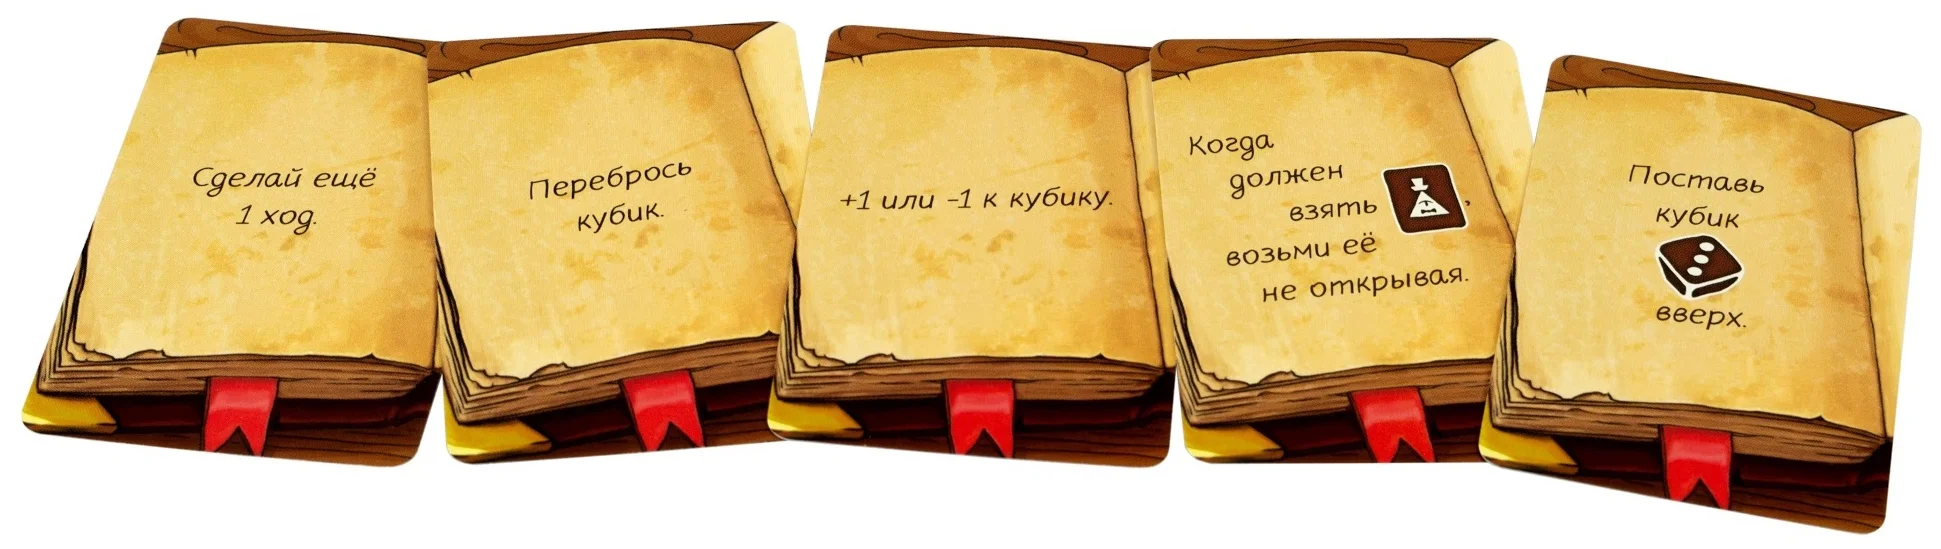 Сделай ещё
1 ход.
Перебрось
кубик.
+1 или -1 к кубику.
Когда
должен
взять ,
возьми её
не открывая.
Поставь
кубик
вверх.